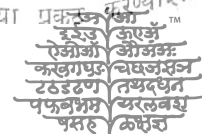 या प्रकट करण्या
अ आ ™
इ ई उ ऊ ए ॲ
ऐ ओ औ ऑ अं अः
क ख ग घ ङ च छ ज झ ञ
ट ठ ड ढ ण त थ द ध न
प फ ब भ म य र ल व श
ष स ह ळ क्ष ज्ञ